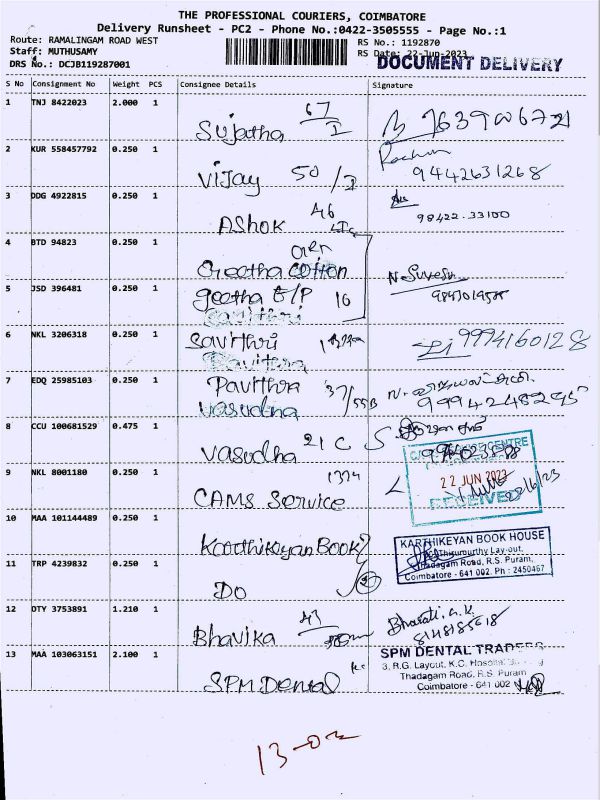 THE PROFESSIONAL COURIERS, COIMBATORE
Delivery Runsheet - PC2 - Phone No.:0422-3505555 - Page No.:1
Route: RAMALINGAM ROAD WEST
RS No.: 1192870
Staff: MUTHUSAMY
RS Date: 22-Jun-2023
DRS No.: DCJB119287001
DOCUMENT DELIVERY
S No Consignment No Weight PCS Consignee Details Signature
1 TNJ 8422023 2.000 1
Sujatha 67/I
7639006721
2 KUR 558457792 0.250 1
Vijay 50/I
9442631268
3 DDG 4922815 0.250 1
ASHOK 46
98422-33100
4 BTD 94823 0.250 1
Geetha cotton
5 JSD 396481 0.250 1
geetha E/P 16
N. Suresh
6 NKL 3206318 0.250 1
Savithri
9994160128
7 EDQ 25985103 0.250 1
Pavithra 37/55B
Vasudha
8 CCU 100681529 0.475 1
Vasudha 21 C
9 NKL 8001180 0.250 1
CAMS Service
1374
22 JUN 2023
RECEIVED
10 MAA 101144489 0.250 1
Karthikeyan Book
KARTHIKEYAN BOOK HOUSE
Thirumurthy Lay-out,
Thadagam Road, R.S. Puram,
Coimbatore - 641 002. Ph : 2450467
11 TRP 4239832 0.250 1
Do
12 OTY 3753891 1.210 1
Bhavika 43
Bharati. G.K.
8148185618
13 MAA 103063151 2.100 1
SPM Dental
SPM DENTAL TRADERS
3, R.G. Layout, K.C. Hospital
Thadagam Road, R.S. Puram
Coimbatore - 641 002